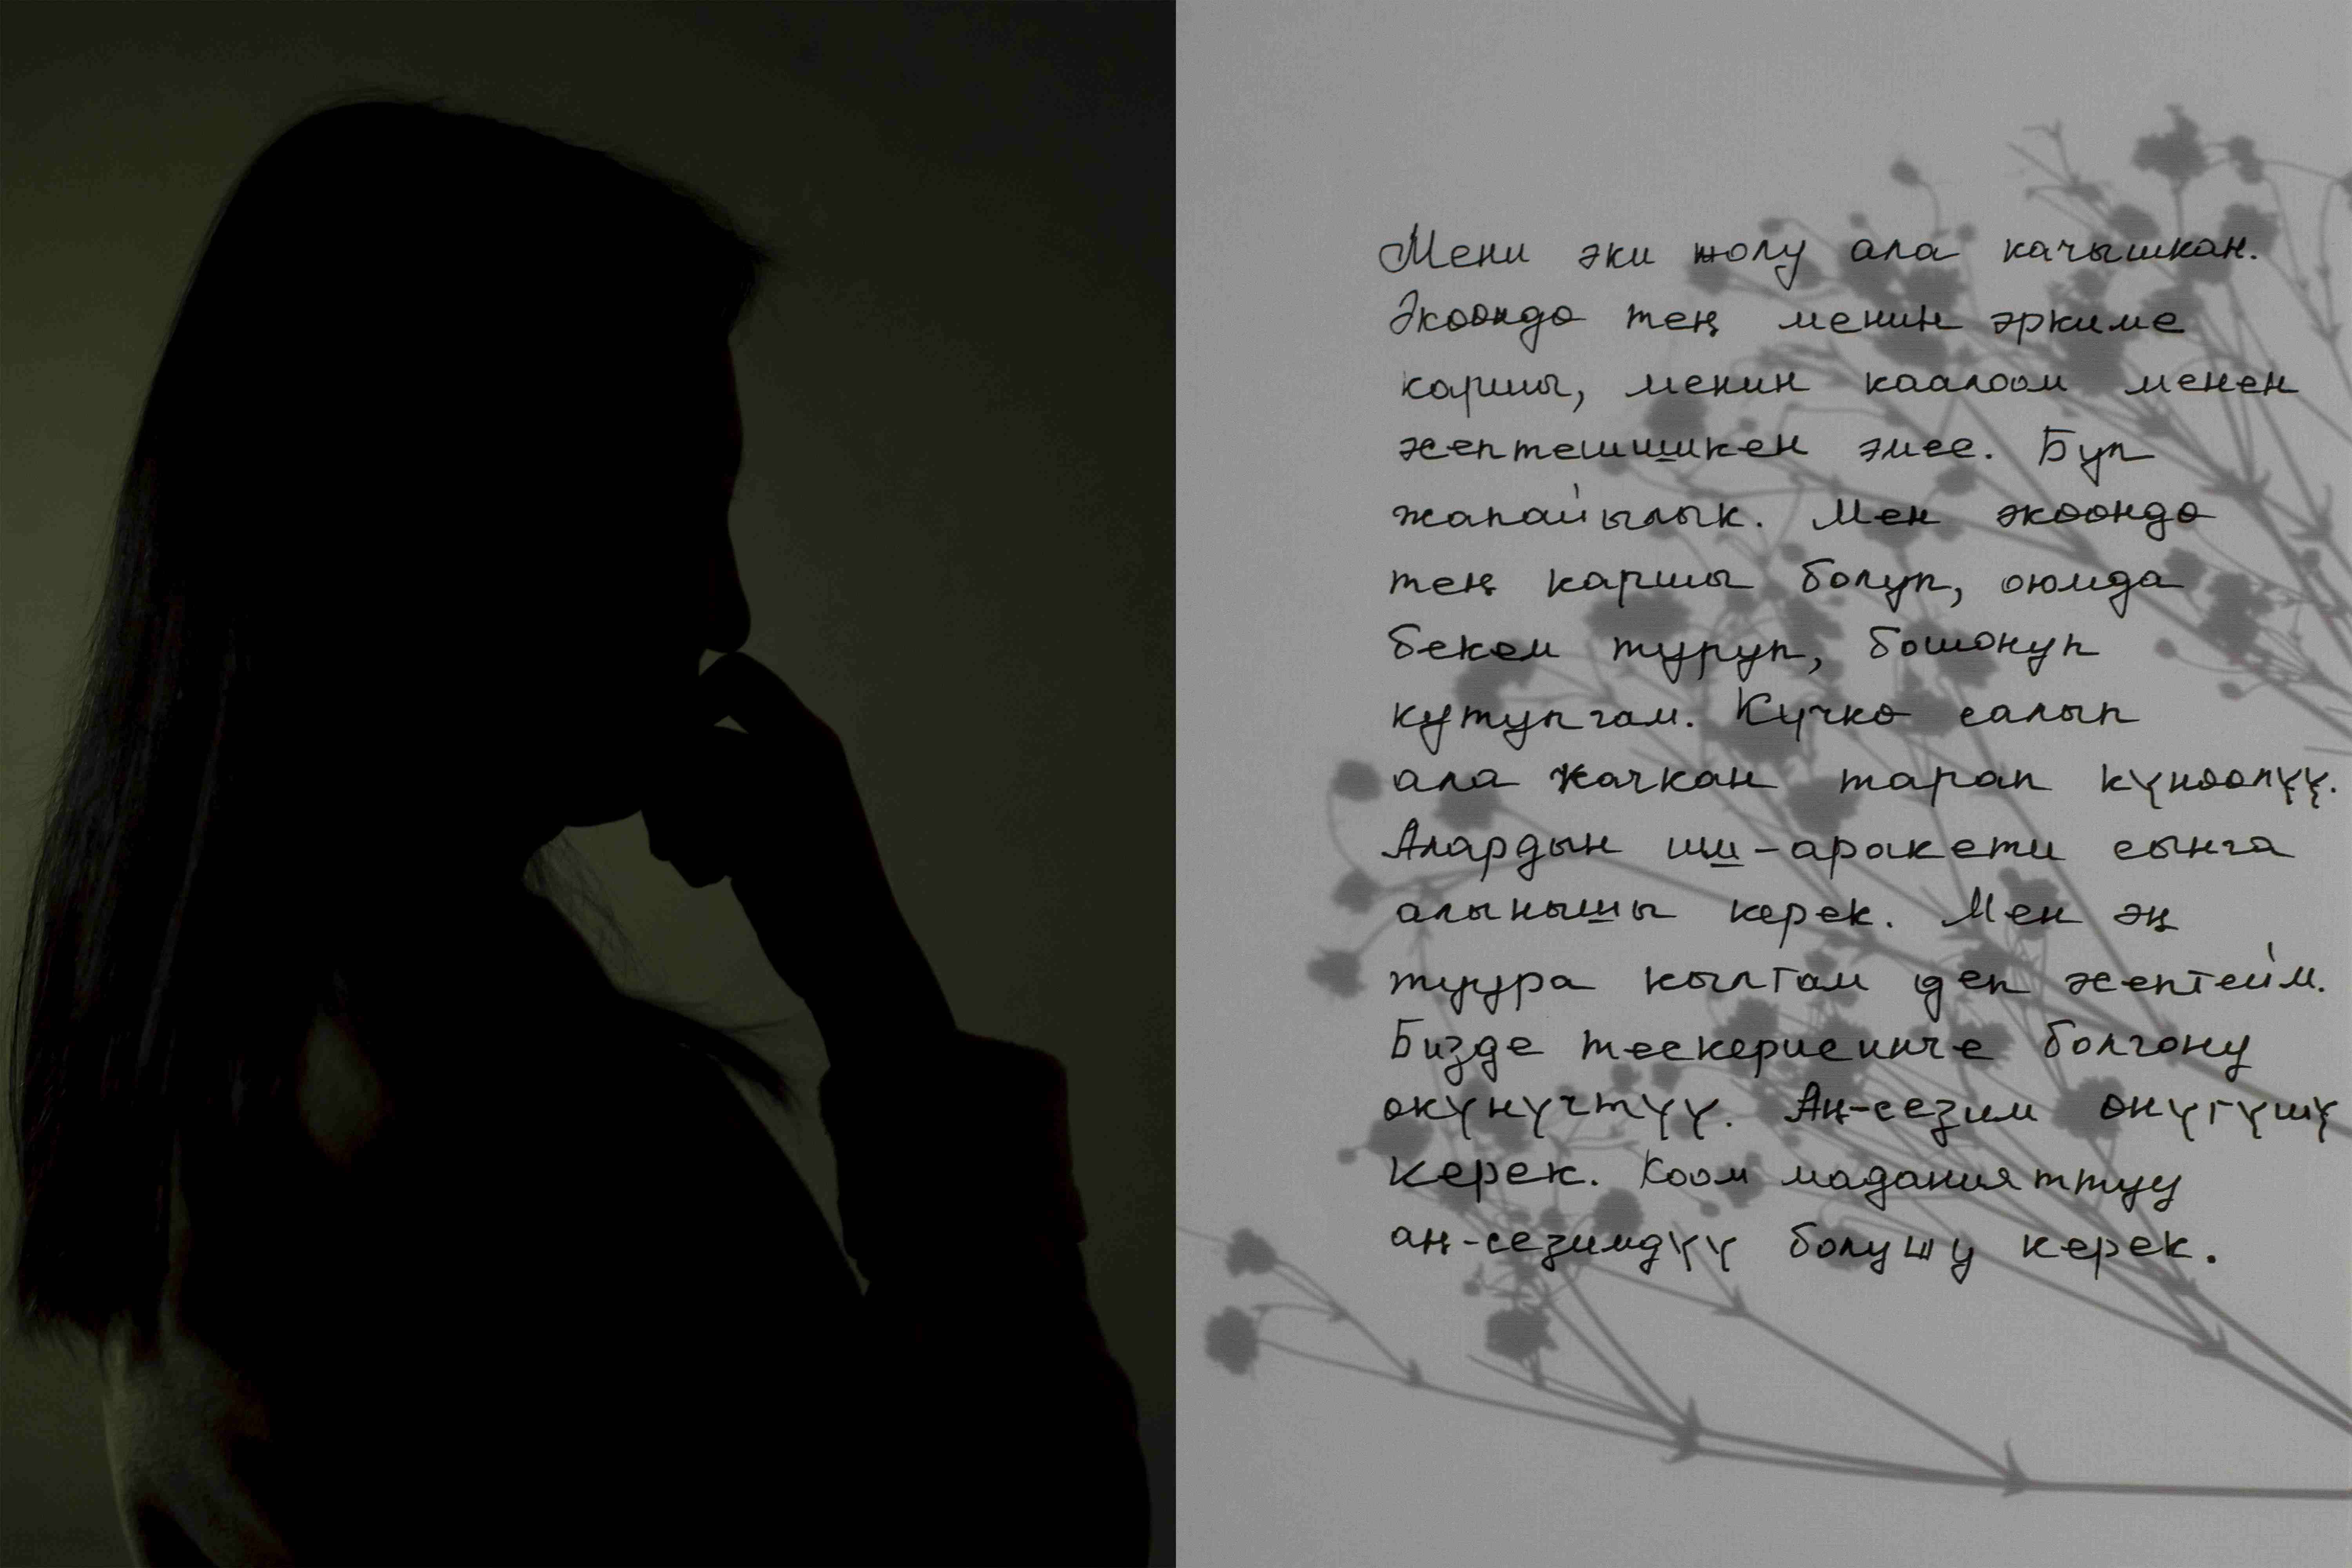 Мени эки жолу ала качышкан.
Экоондо тең менин эркиме
каршы, менин каалоом менен
эсептешишкен эмес. Бул
жапайылык. Мен экоондо
тең каршы болуп, оюмда
бекем туруп, бошонуп
кутулгам. Күчкө салып
ала качкан тарап күнөөлүү.
Алардын иш-аракети сынга
алынышы керек. Мен эң
туура кылгам деп эсептейм.
Бизде тескерисинче болгону
өкүнүчтүү. Аң-сезим өнүгүшү
керек. Коом маданияттуу
аң-сезимдүү болушу керек.